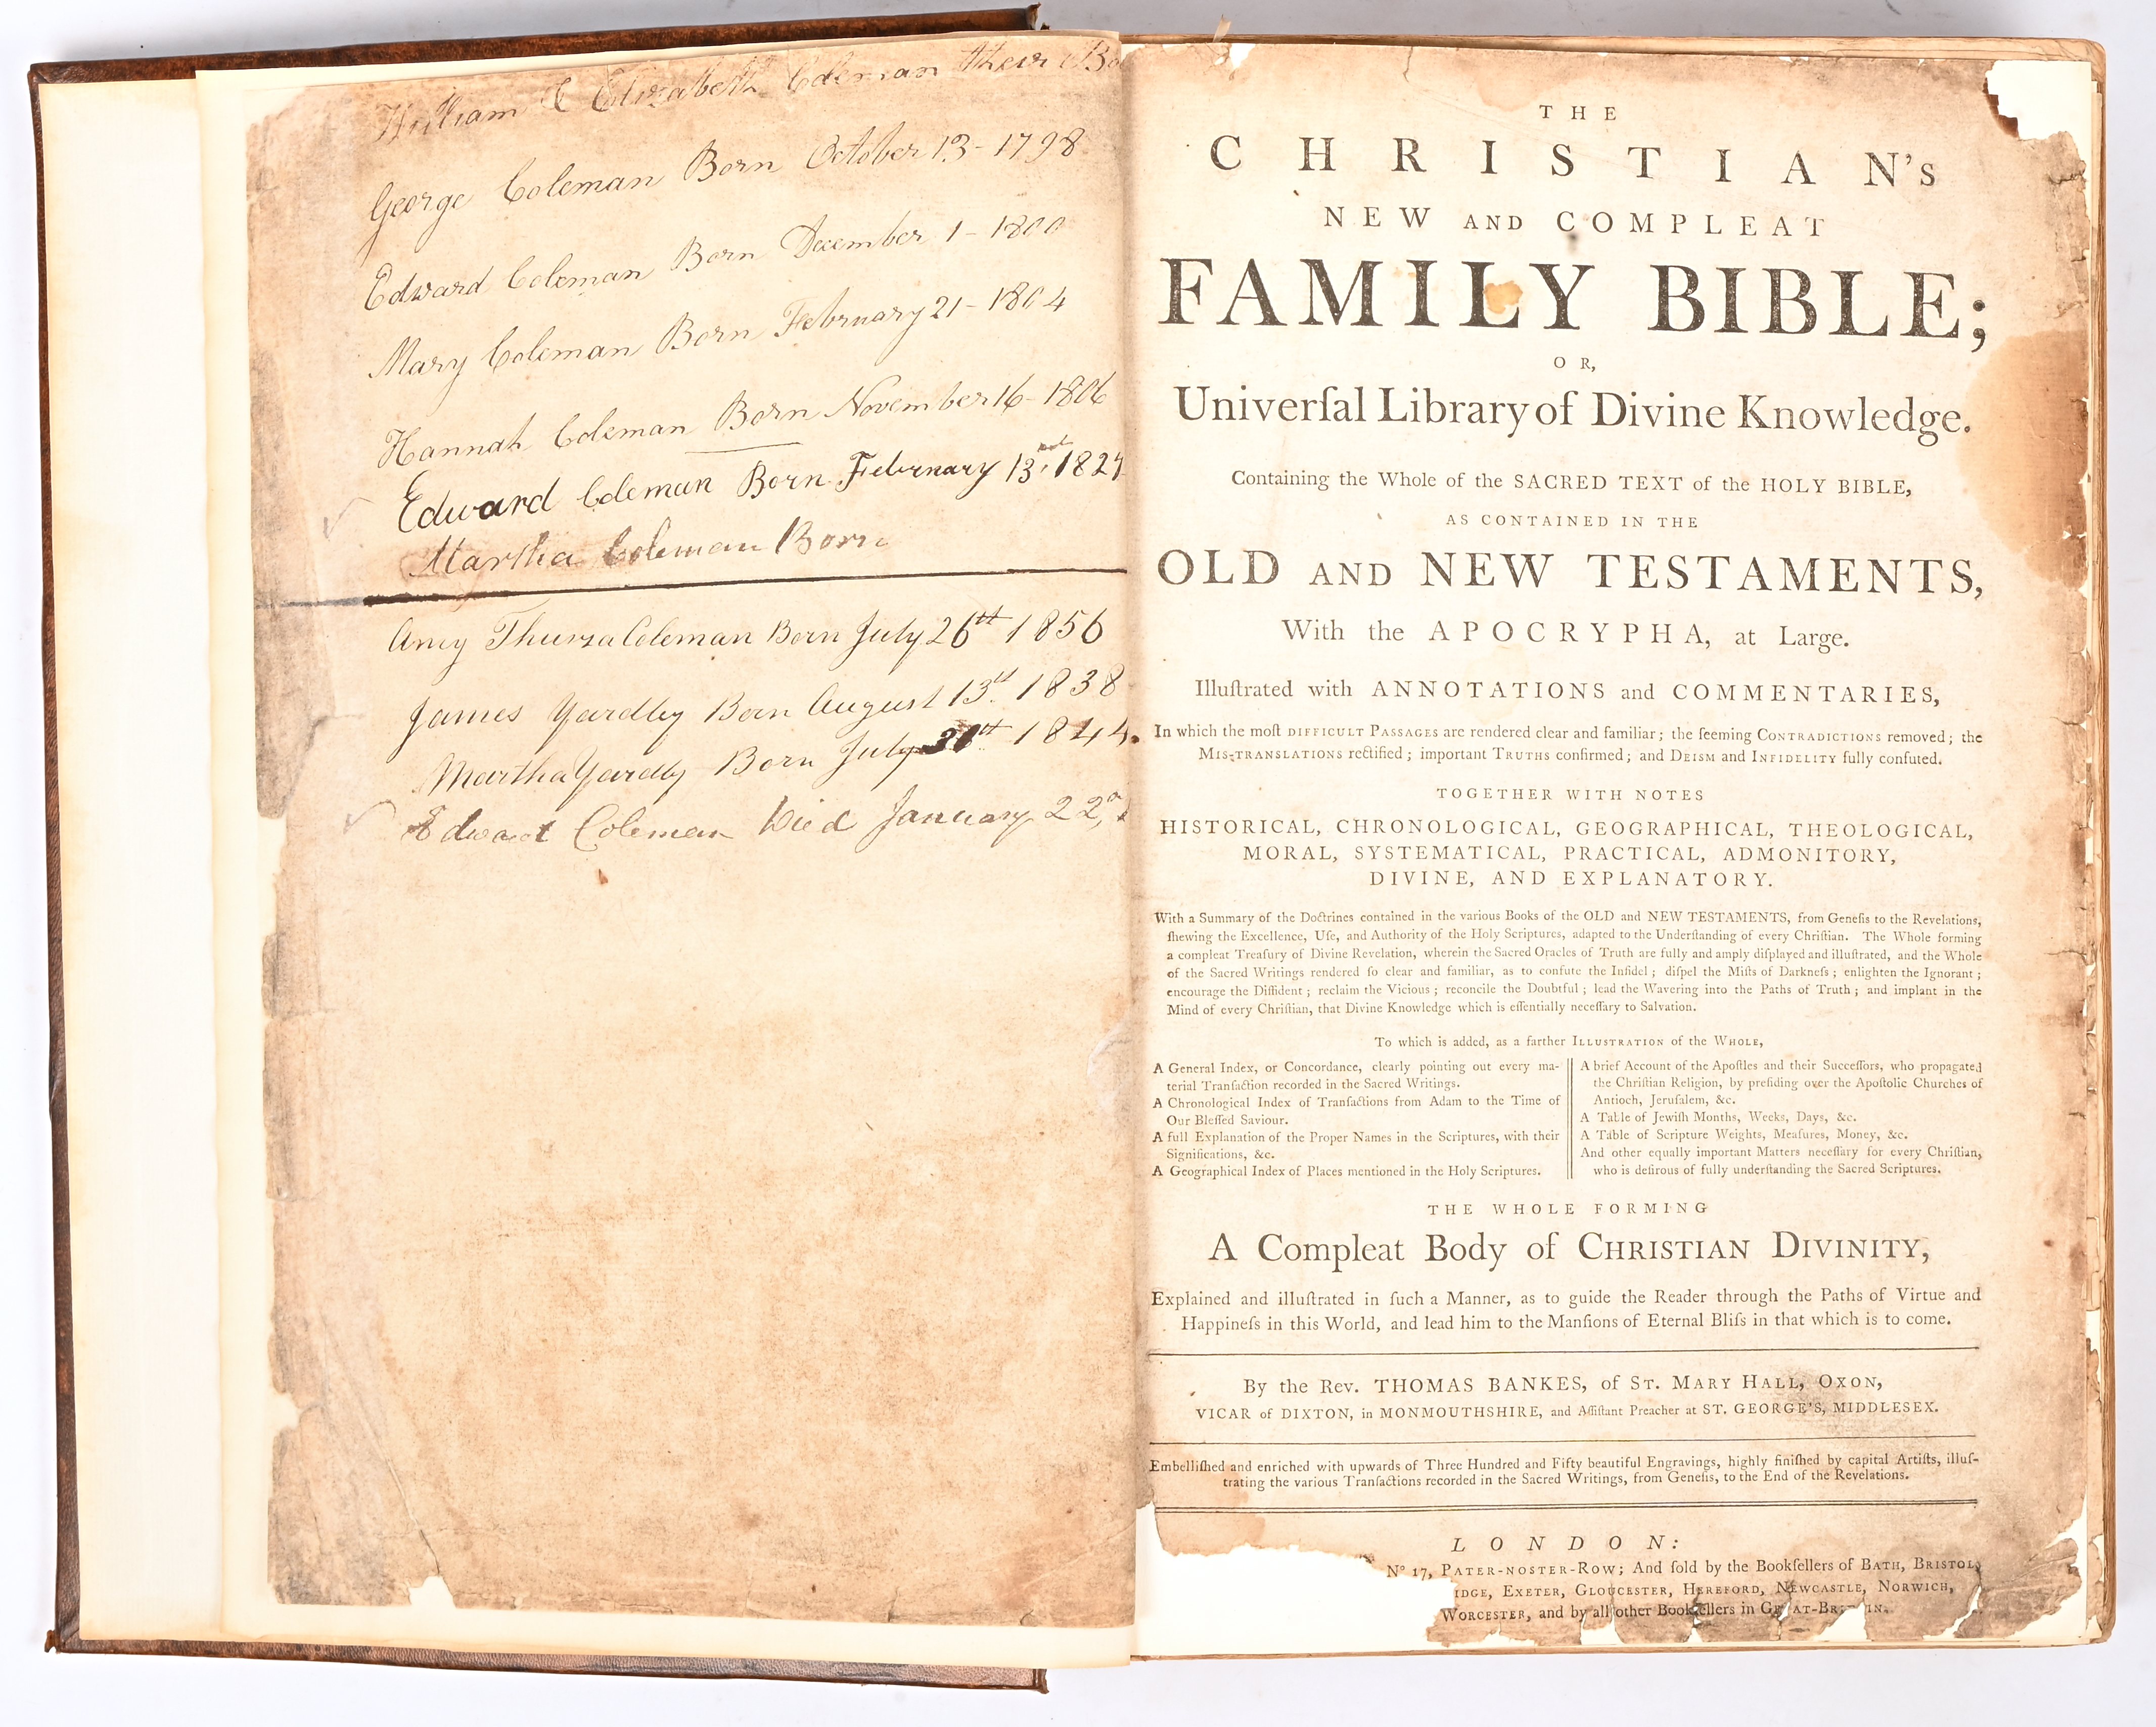 William & Elizabeth Coleman their
George Coleman Born October 13 - 1798
Edward Coleman Born December 1 - 1800
Mary Coleman Born February 21 - 1804
Hannah Coleman Born November 16 - 1806
Edward Coleman Born February 13
Martha Coleman Born
Amy Thurza Coleman Born July 26th 1856
James Yardley Born August 13d 1838
Martha Yardly Born July 1844.
Edward Coleman Died January 22
THE
CHRISTIAN's
NEW AND COMPLEAT
FAMILY BIBLE;
OR,
Univerſal Library of Divine Knowledge.
Containing the Whole of the SACRED TEXT of the HOLY BIBLE,
AS CONTAINED IN THE
OLD AND NEW TESTAMENTS,
With the APOCRYPHA, at Large.
Illuſtrated with ANNOTATIONS and COMMENTARIES,
In which the moſt DIFFICULT PASSAGES are rendered clear and familiar; the ſeeming CONTRADICTIONS removed; the
MIS-TRANSLATIONS rectified; important TRUTHS confirmed; and DEISM and INFIDELITY fully confuted.
TOGETHER WITH NOTES
HISTORICAL, CHRONOLOGICAL, GEOGRAPHICAL, THEOLOGICAL,
MORAL, SYSTEMATICAL, PRACTICAL, ADMONITORY,
DIVINE, AND EXPLANATORY.
With a Summary of the Doctrines contained in the various Books of the OLD and NEW TESTAMENTS, from Geneſis to the Revelations,
ſhewing the Excellence, Uſe, and Authority of the Holy Scriptures, adapted to the Underſtanding of every Chriſtian. The Whole forming
a compleat Treaſury of Divine Revelation, wherein the Sacred Oracles of Truth are fully and amply diſplayed and illuſtrated, and the Whole
of the Sacred Writings rendered ſo clear and familiar, as to confute the Infidel; diſpel the Miſts of Darkneſs; enlighten the Ignorant;
encourage the Diffident; reclaim the Vicious; reconcile the Doubtful; lead the Wavering into the Paths of Truth; and implant in the
Mind of every Chriſtian, that Divine Knowledge which is eſſentially neceſſary to Salvation.
To which is added, as a farther ILLUSTRATION of the WHOLE,
A General Index, or Concordance, clearly pointing out every ma-
terial Tranſaction recorded in the Sacred Writings.
A Chronological Index of Tranſactions from Adam to the Time of
Our Bleſſed Saviour.
A full Explanation of the Proper Names in the Scriptures, with their
Significations, &c.
A Geographical Index of Places mentioned in the Holy Scriptures.
A brief Account of the Apoſtles and their Succeſſors, who propagated
the Chriſtian Religion, by preſiding over the Apoſtolic Churches of
Antioch, Jeruſalem, &c.
A Table of Jewiſh Months, Weeks, Days, &c.
A Table of Scripture Weights, Meaſures, Money, &c.
And other equally important Matters neceſſary for every Chriſtian,
who is deſirous of fully underſtanding the Sacred Scriptures.
THE WHOLE FORMING
A Compleat Body of CHRISTIAN DIVINITY,
Explained and illuſtrated in ſuch a Manner, as to guide the Reader through the Paths of Virtue and
Happineſs in this World, and lead him to the Manſions of Eternal Bliſs in that which is to come.
By the Rev. THOMAS BANKES, of ST. MARY HALL, OXON,
VICAR of DIXTON, in MONMOUTHSHIRE, and Aſſiſtant Preacher at ST. GEORGE'S, MIDDLESEX.
Embelliſhed and enriched with upwards of Three Hundred and Fifty beautiful Engravings, highly finiſhed by capital Artiſts, illuſ-
trating the various Tranſactions recorded in the Sacred Writings, from Geneſis, to the End of the Revelations.
LONDON:
No 17, PATER-NOSTER-ROW; And ſold by the Bookſellers of BATH, BRISTOL,
IDGE, EXETER, GLOUCESTER, HEREFORD, NEWCASTLE, NORWICH,
WORCESTER, and by all other Bookſellers in GREAT-BRITAIN.